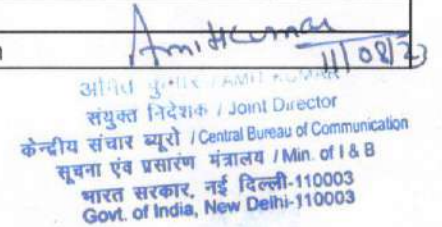 Amit Kumar
11/08/23
अमित कुमार / AMIT KUMAR
संयुक्त निदेशक / Joint Director
केन्द्रीय संचार ब्यूरो / Central Bureau of Communication
सूचना एंव प्रसारंण मंत्रालय / Min. of I & B
भारत सरकार, नई दिल्ली-110003
Govt. of India, New Delhi-110003